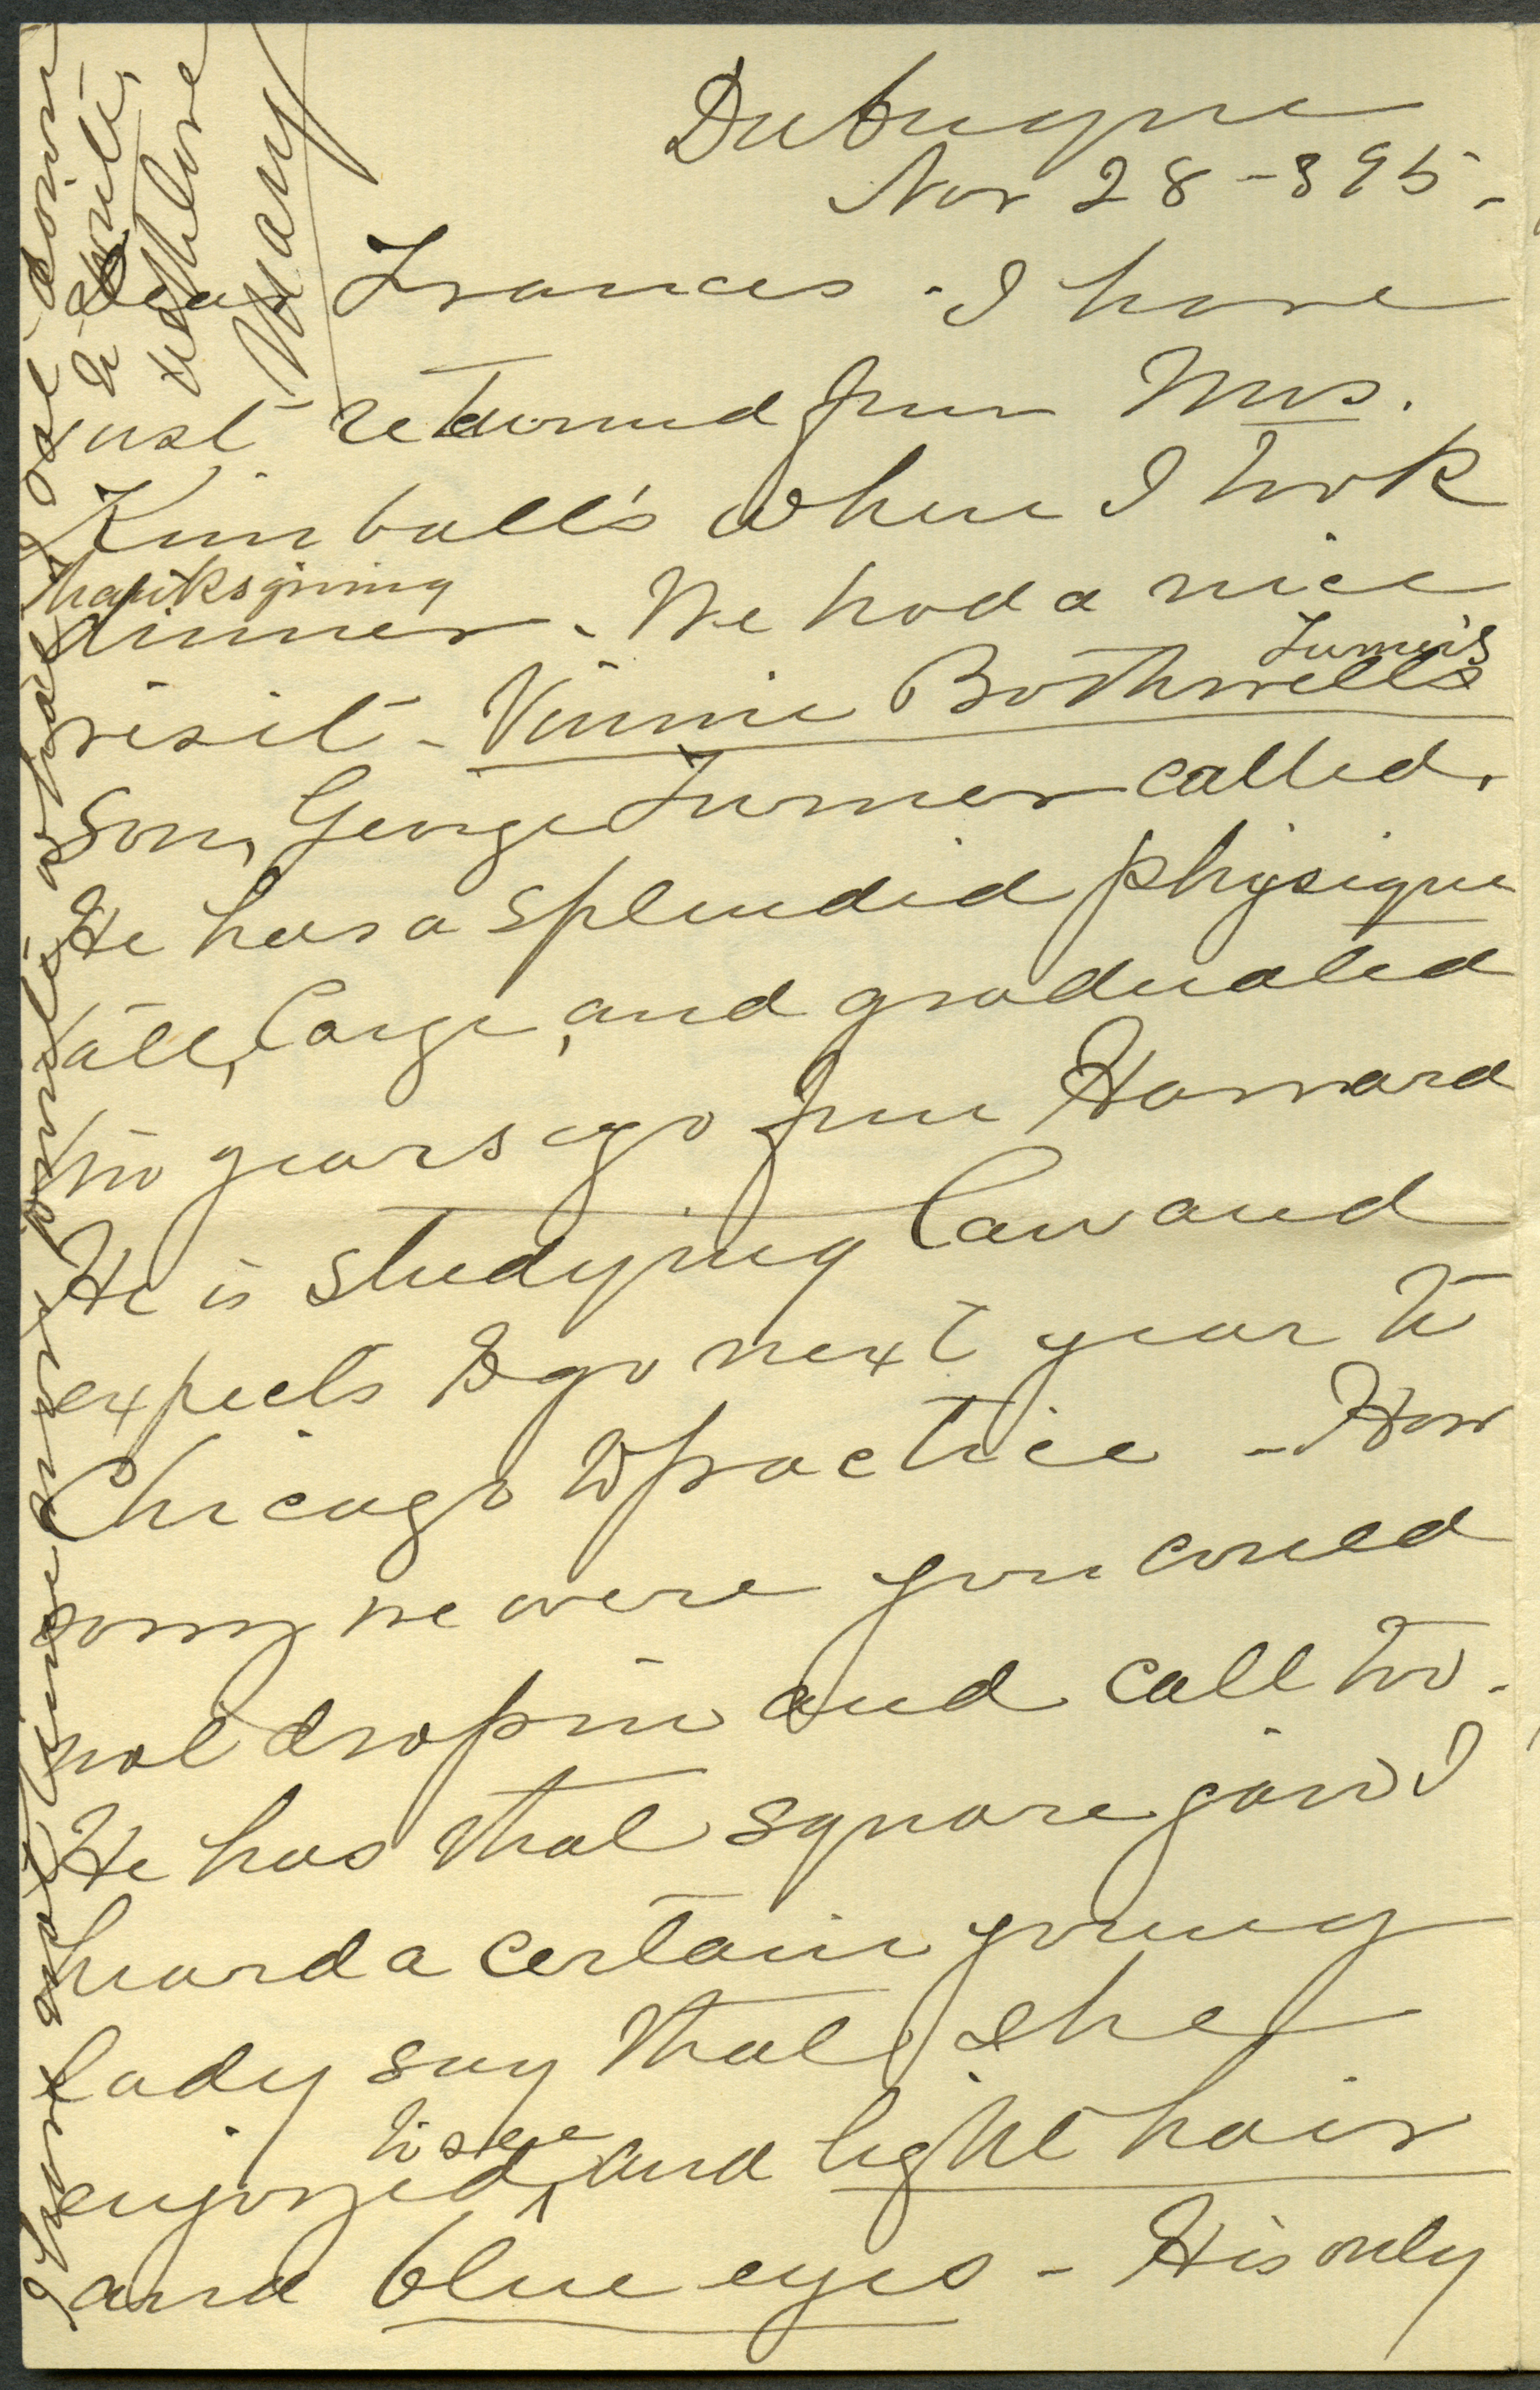 Dubuque
Nov 28-895-
Dear Frances - I have
just returned from Mrs.
Kimball's where I took
Thanksgiving
dinner - We had a nice
visit - Vinnie Bothwell's Turner's
son, George Turner called.
He has a splendid physique
tall, large, and graduated
two years ago from Harvard
He is studying law and
expects to go next year to
Chicago to practice - How
sorry we were you could
not drop in and call too.
He has that square jaw I
heard a certain young
lady say that she
enjoyed to see, and light hair
and blue eyes - His only
I have not time
to write,
with love
Mary